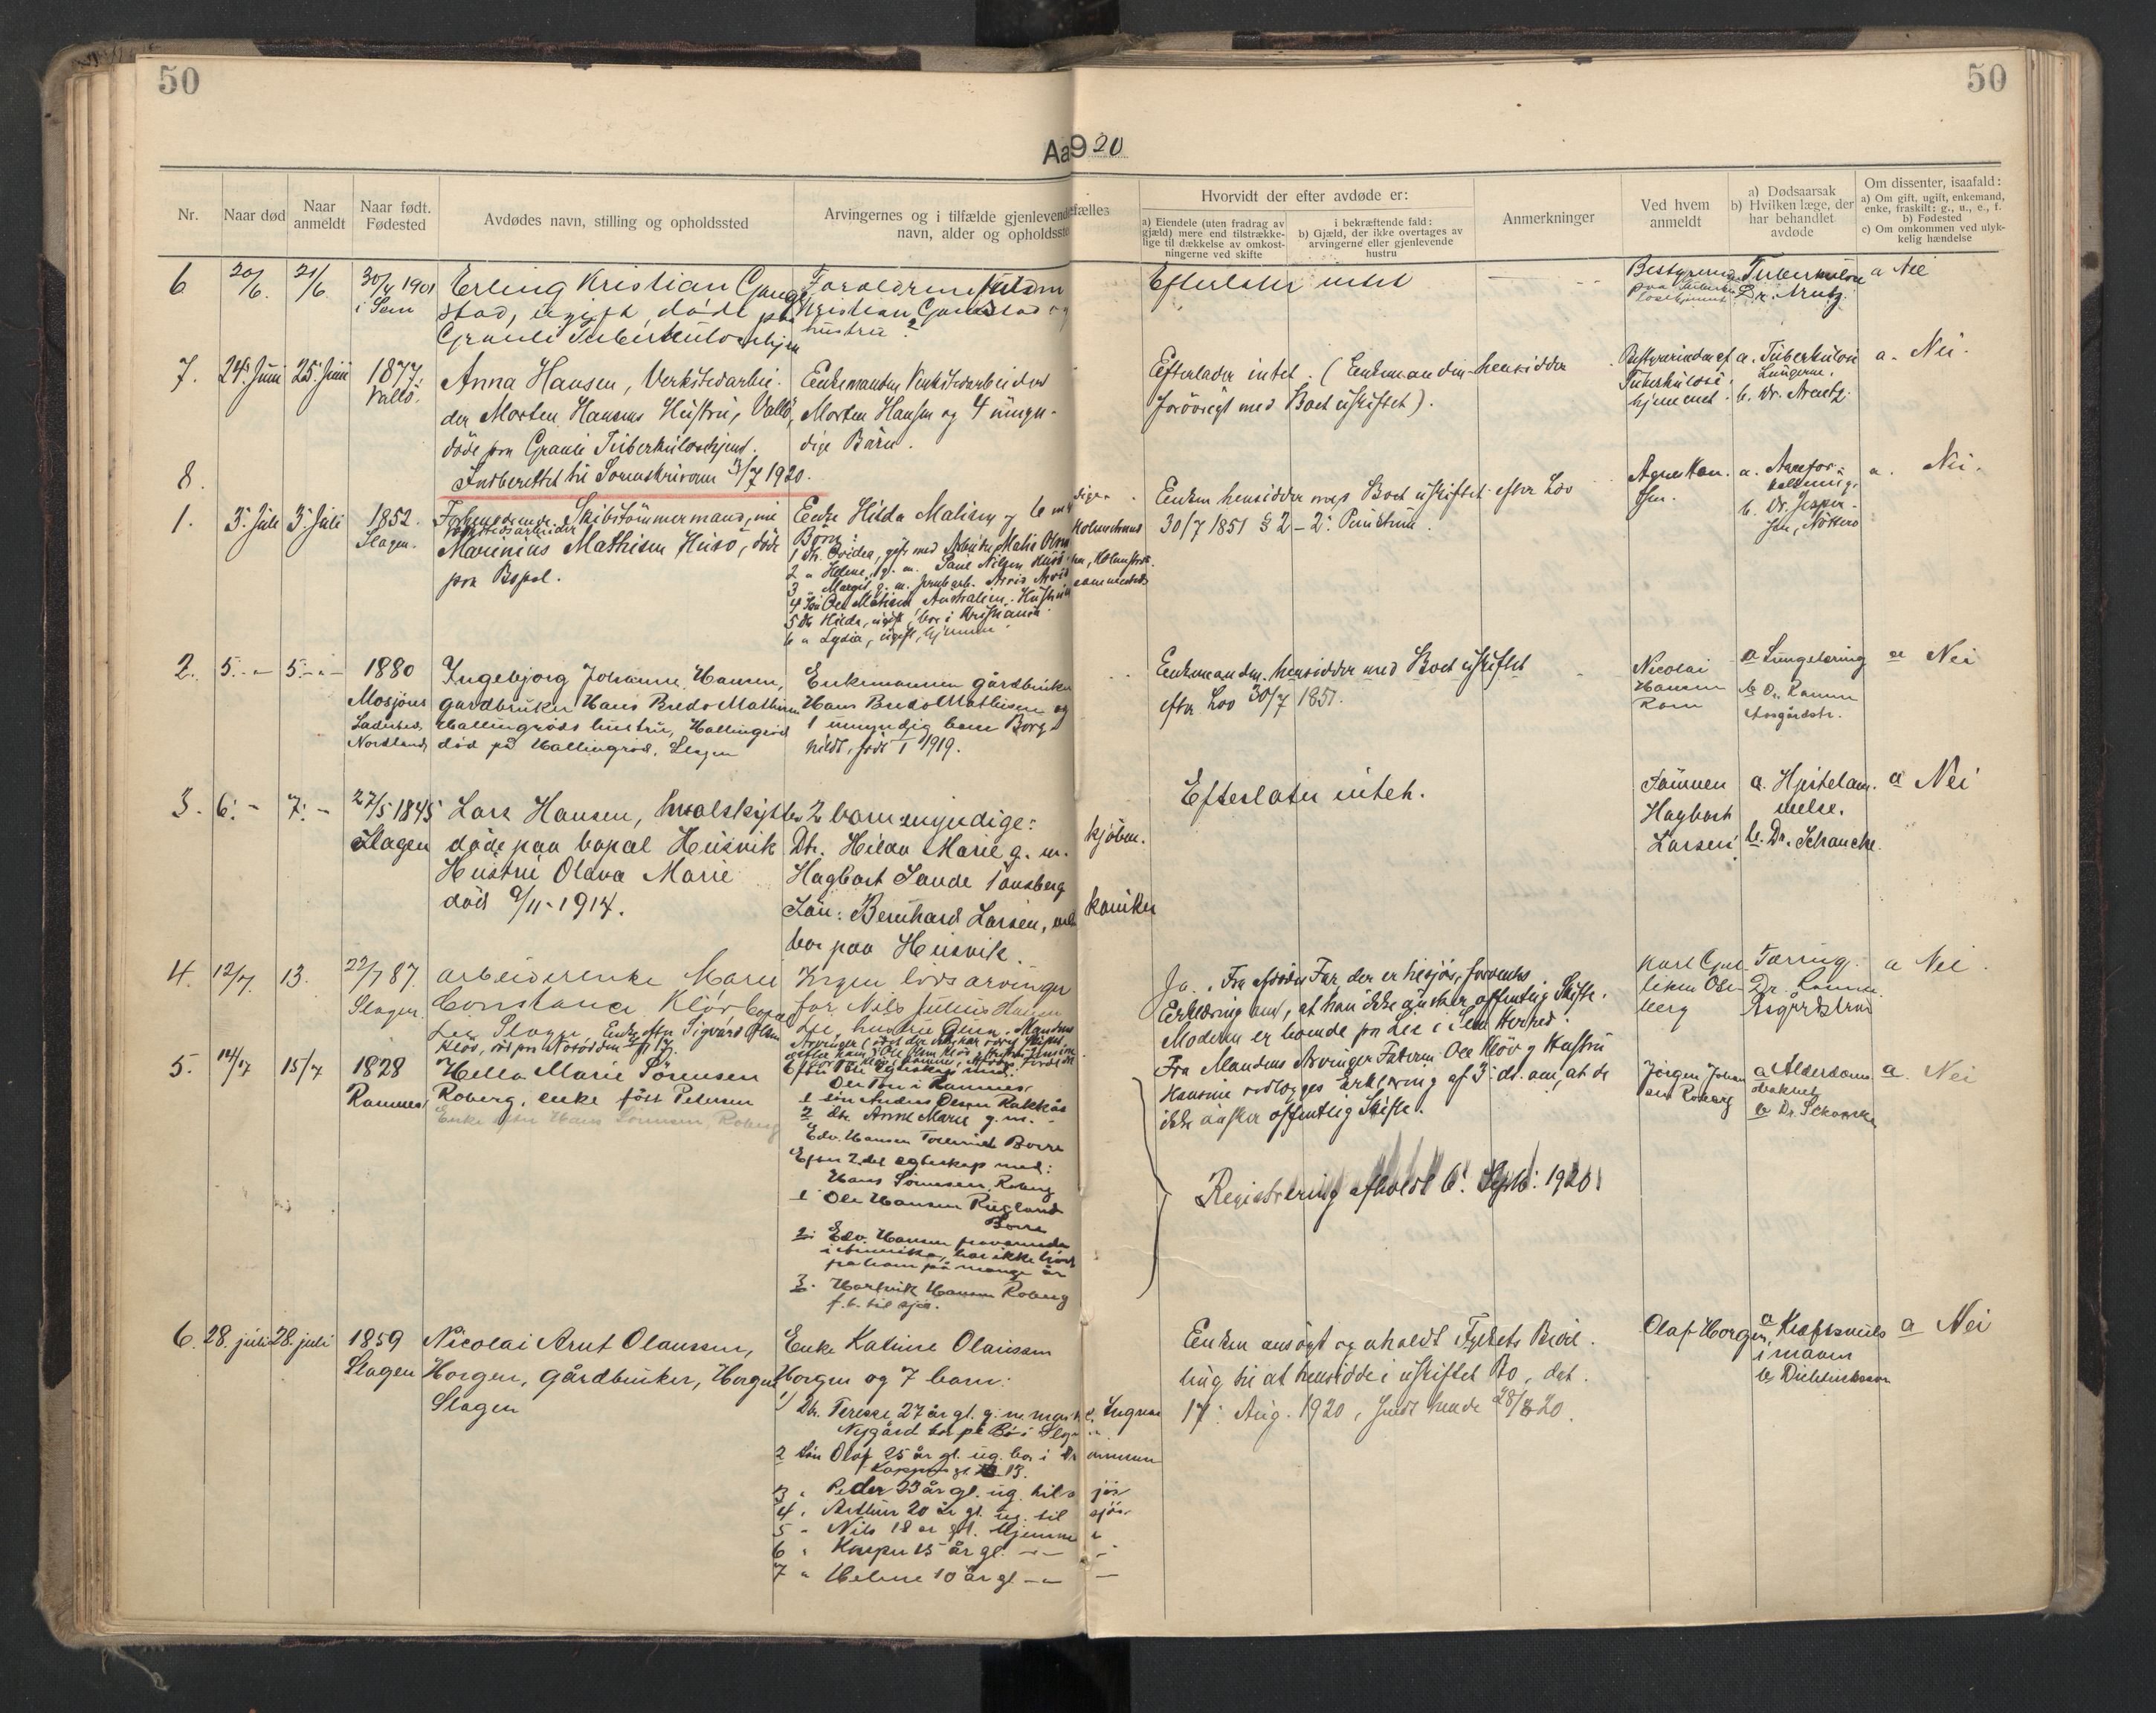 50
50
Aa920
Nr.
Naar død
Naar
anmeldt
Naar født.
Fødested
Avdødes navn, stilling og opholdssted
Arvingernes og i tilfælde gjenlevende
navn, alder og opholdsste
efælles
Hvorvidt der efter avdøde er:
a) Eiendele (uten fradrag av
gjæld) mere end tilstrække-
lige til dækkelse av omkost-
ningerne ved skifte
i bekræftende fald:
b) Gjæld, der ikke overtages av
arvingerne eller gjenlevende
hustru
Anmerkninger
Ved hvem
anmeldt
a) Dødsaarsak
b) Hvilken læge, der
har behandlet
avdøde
Om dissenter, isaafald:
a) Om gift, ugift, enkemand,
enke, fraskilt: g., u., e., f.
b) Fødested
c) Om omkommen ved ulyk-
kelig hændelse
6
20/6.
21/6
30/4 1901
i Sem
Erling Kristian Gaug
stad, ugift, døde paa
Grauli Tuberkulosehjem
Forældrene
Kristian
hustru
Efterlater intet
Bestyrerinden
Tuberkulose
Dr. Arentz.
a Nei
7.
24. Juni
25. Juni
1877.
Vallö.
Anna Hansen, Verkstedarbei-
der Morten Hansens Hustru, Vallö,
döde paa Grauli Tuberkulosehjem.
Indberettet til Sorenskriveren 3/7 1920.
Enkemanden Verkstedarbeider
Morten Hansen og 4 umyn-
dige Börn.
Efterlader intet. (Enkemanden hensidder
forövrigt med Boet uskiftet).
Bestyrerinden af
Tuberkulose-
hjemmet.
a. Tuberkulose
Lungerne.
b. Dr. Arentz.
a. Nei.
8.
1.
3. Juli
3. Juli
1852.
Slagen.
Forhenværende Skibstömmermand, nu
Verkstedsarbeider
Marinius Mathisen Husö, döde
paa Bopæl.
Enke Hilda Mathisen og 6 my
Börn:
1 Dt. Ovidea, gift med Arbeider Matis Olsen
2 " Helene, g. m. Paul Nilsen Husö
3 " Margit g. m. Jernbarb. Arvid
4 Sön Ole Matisen Australien.
5 Dt. Hilda, ugift, bor i Kristiania
6 " Lydia, ugift, hjemme
dige
Holmestrand
sammesteds
Enken hensidder med Boet uskiftet efter Lov
30/7 1851 § 2 - 2. Punktum.
Agnes Han-
sen.
a. Aarefor-
kalkning.
b. Dr. Jesper-
sen, Nötterö
a. Nei.
2.
5. - "
5. - " -
1880
Mosjöen
Nordland
Ingebjorg Johanne Hansen,
gardbruker Hans Bredo Mathisen
Hallingrøds hustru, Hallingrød
død på Hallingrød, Slagen
Enkemannen gårdbruker
Hans Bredo Mathisen og
1 umyndig barn Borg
hildt, født 1 1919.
Enkemanden hensidder med Boet uskiftet
efter Lov 30/7 1851.
Nicolai
Hansen
Rom
a Lungetæring
b Dr. Ramm
Aasgårdstr.
a Nei
3.
6. -
7. -
27/5 1845
Slagen
Lars Hansen, hvalskytter
döde paa bopæl Husvik
Hustru Olava Marie
död 9/11-1914.
2 barn myndige:
Dtr. Hilda Marie g. m.
Hagbart Sande Tönsberg
Sön: Bernhard Larsen, me
bor paa Husvik.
kjöbm.
kaniker
Efterlater intet.
Sönnen
Hagbart
Larsen
a. Hjertelam-
melse.
b. Dr. Schancke.
a Nei
4.
12/7
13.
22/7 87.
Slagen.
arbeiderenke Marie
Constance Klöv bopæl
Lie Slagen, Enke efter Sigvard Olsen
Klöv, död paa Notodden
Ingen livsarvinger
far Nils Julius Hansen
Lie, hustru Gina. Mandens
Arvinger
Ja. Fra afdödes Far, der er tilsjös, forventes
Erklæring om, at han ikke önsker offentlig Skifte.
Moderen er boende på Lie i Sem Herred.
Fra Mandens Arvinger Faderen Ole Klöv og Hustru
Hansine vedlægges Erklæring af 3. ds. om, at de
ikke önsker offentlig Skifte.
Karl
Olen
berg
Tæring.
Dr. Ramm
Åsgårdstran
a Nei.
5.
14/7
15/7
1828
Ramnes
Hella Marie Sörensen
Roberg, enke född Petersen
Enke efter Hans Sörensen, Roberg
Efter 1ste Egteskap med:
Ole i Ramnes
1 sön Anders Olsen Rakkås
2 dtr. Anne Marie g. m.
Edv. Hansen Borre
Efter 2. det egteskap med:
Hans Sörensen, Roberg
1 Ole Hansen Rugland
Borre
2: Edv. Hansen fraværende
i Amerika, har ikke hört
fra ham på mange år
3. Hartvik Hansen Roberg
f. t. til sjös.
Registrering afholdt 6. Septb: 1920.
Jörgen Johan
sen Roberg
a Alderdoms
svakhet
b Dr. Schancke
a. Nei
6.
28. juli
28. juli
1859
Slagen
Nicolai Arnt Olaussen,
Horgen, gårdbruker, Horgen
Slagen
Enke Katrine Olaussen
Horgen og 7 barn:
1) Dtr. Terese 27 år gl. g. m.
Nygård bor på Bö i Slagen
2 Sön Olaf 25 år gl. ug. bor i Dr
ammen
3 " Peder 23 år gl. ug. til s
jös
4 " Arthur 20 år gl. ug. til
sjös
5 " Nils 18 år gl. hjemme
6 " Kasper 15 år gl. - " -
7 " Helene 10 år gl - " -
Enken ansögt og erholdt Fylkets Bevil-
ling til at hensidde i uskiftet Bo, dat.
17. Aug. 1920, 28/8 20.
Olaf Horgen
a Kræftsvuls
i maven
b Diedrichson
a Nei